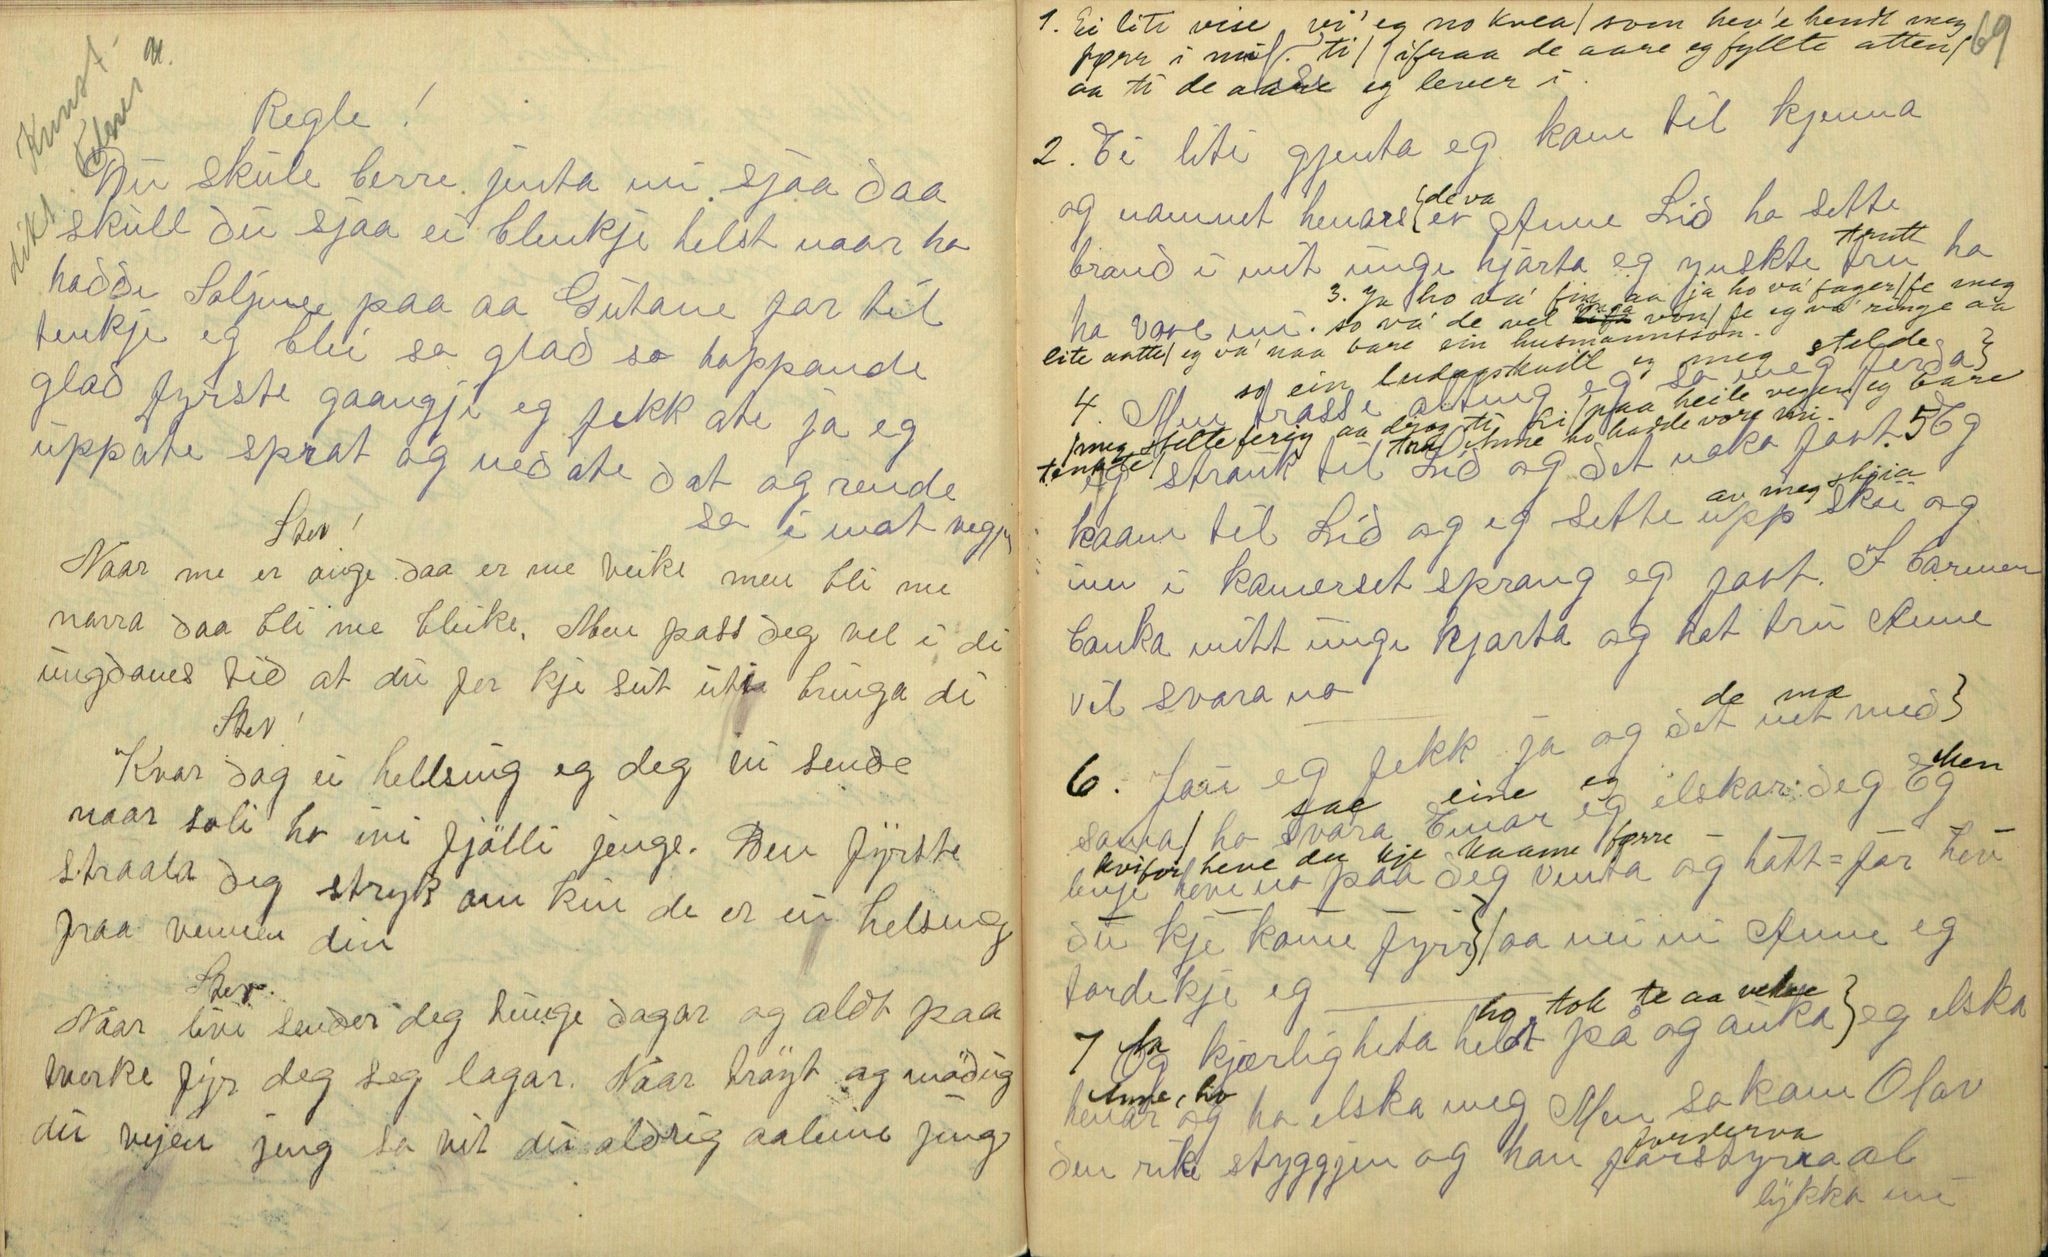 Kunst
dikt
Regle!
Nu skule berre jenta mi sjaa daa
skull du sjaa ei blenkje helst naar ho
hadde Soljune paa aa Gutane for til
tenkje eg blei so glad so hoppande
glad fyrste gaangji eg fekk ate ja eg
uppate sprat og nedate dat og rende
so i mot vegjin
Stev!
Naar me er unge daa er me veike men bli me
narra daa bli me bleike. Men pass deg vel i di
ungdoms tid at du fer kje sut uti bringa di
Stev!
Kvar dag ei hellsing eg deg vi sende
naar soli ho ivi fjölli jenge. Den fyrste
straala deg stryk om kin de er ei helsing
fraa vennen din
Stev.
Naar livi sender deg tunge dagar og aldt paa
tverke fyr deg seg lagar. Naar tröyt og mödig
du vejen jeng so vit du aldrig aaleine jeng
69
1. Ei liti vise vi' eg no kvea/ som hev'e hendt meg
førr i mi ti/ ifraa de aare eg fyllte atten/
aa ti de aare eg lever i.
2. Ei liti gjenta eg kam til kjenna
og namnet henars {de va
er Anne Lid ho sette
brand i mit unge hjarta eg ynskte trutt
tru ho
ha vore mi. 3. Ja ho va' fin aa ja ho va' fager/ fe meg
so va' de vel inga von/ fe eg va' ringe aa
lite aatte/ eg va' naa bare ein husmannsson.
4. Men trasse alting eg so meg ferda}
so ein laudagskvell eg meg stelde
/meg stellte ferig aa drog ti Li/ paa heile vegen eg bare
tenkte/ tru Anne ho hadde vore mi.
eg strauk til Lid og det noko fort. 5 Eg
kaam til Lid og eg sette upp skii og
av meg skjia
inn i kamerset sprang eg fort. I barmen
banka mitt unge hjarta og kat tru Anne
vil svara no
6. Jau eg fekk ja og det net med}
de mæ
sama/ ho svara Einar eg elskar deg Eg
sae eine eg Men
lenje hevi no paa deg venta og hatt = for hev
kvifor heve du kje kaame førre
du kje kome fyrr}/ aa nei ni Anne eg
tordekje eg
7 Og kjærligheta heldt på og auka} eg elska
Aa ho tok te aa vekse
henar og ho elska meg Men so kom Olav
Anne, ho
den rike styggjen og han forstyrra al
forderva
lykka mi